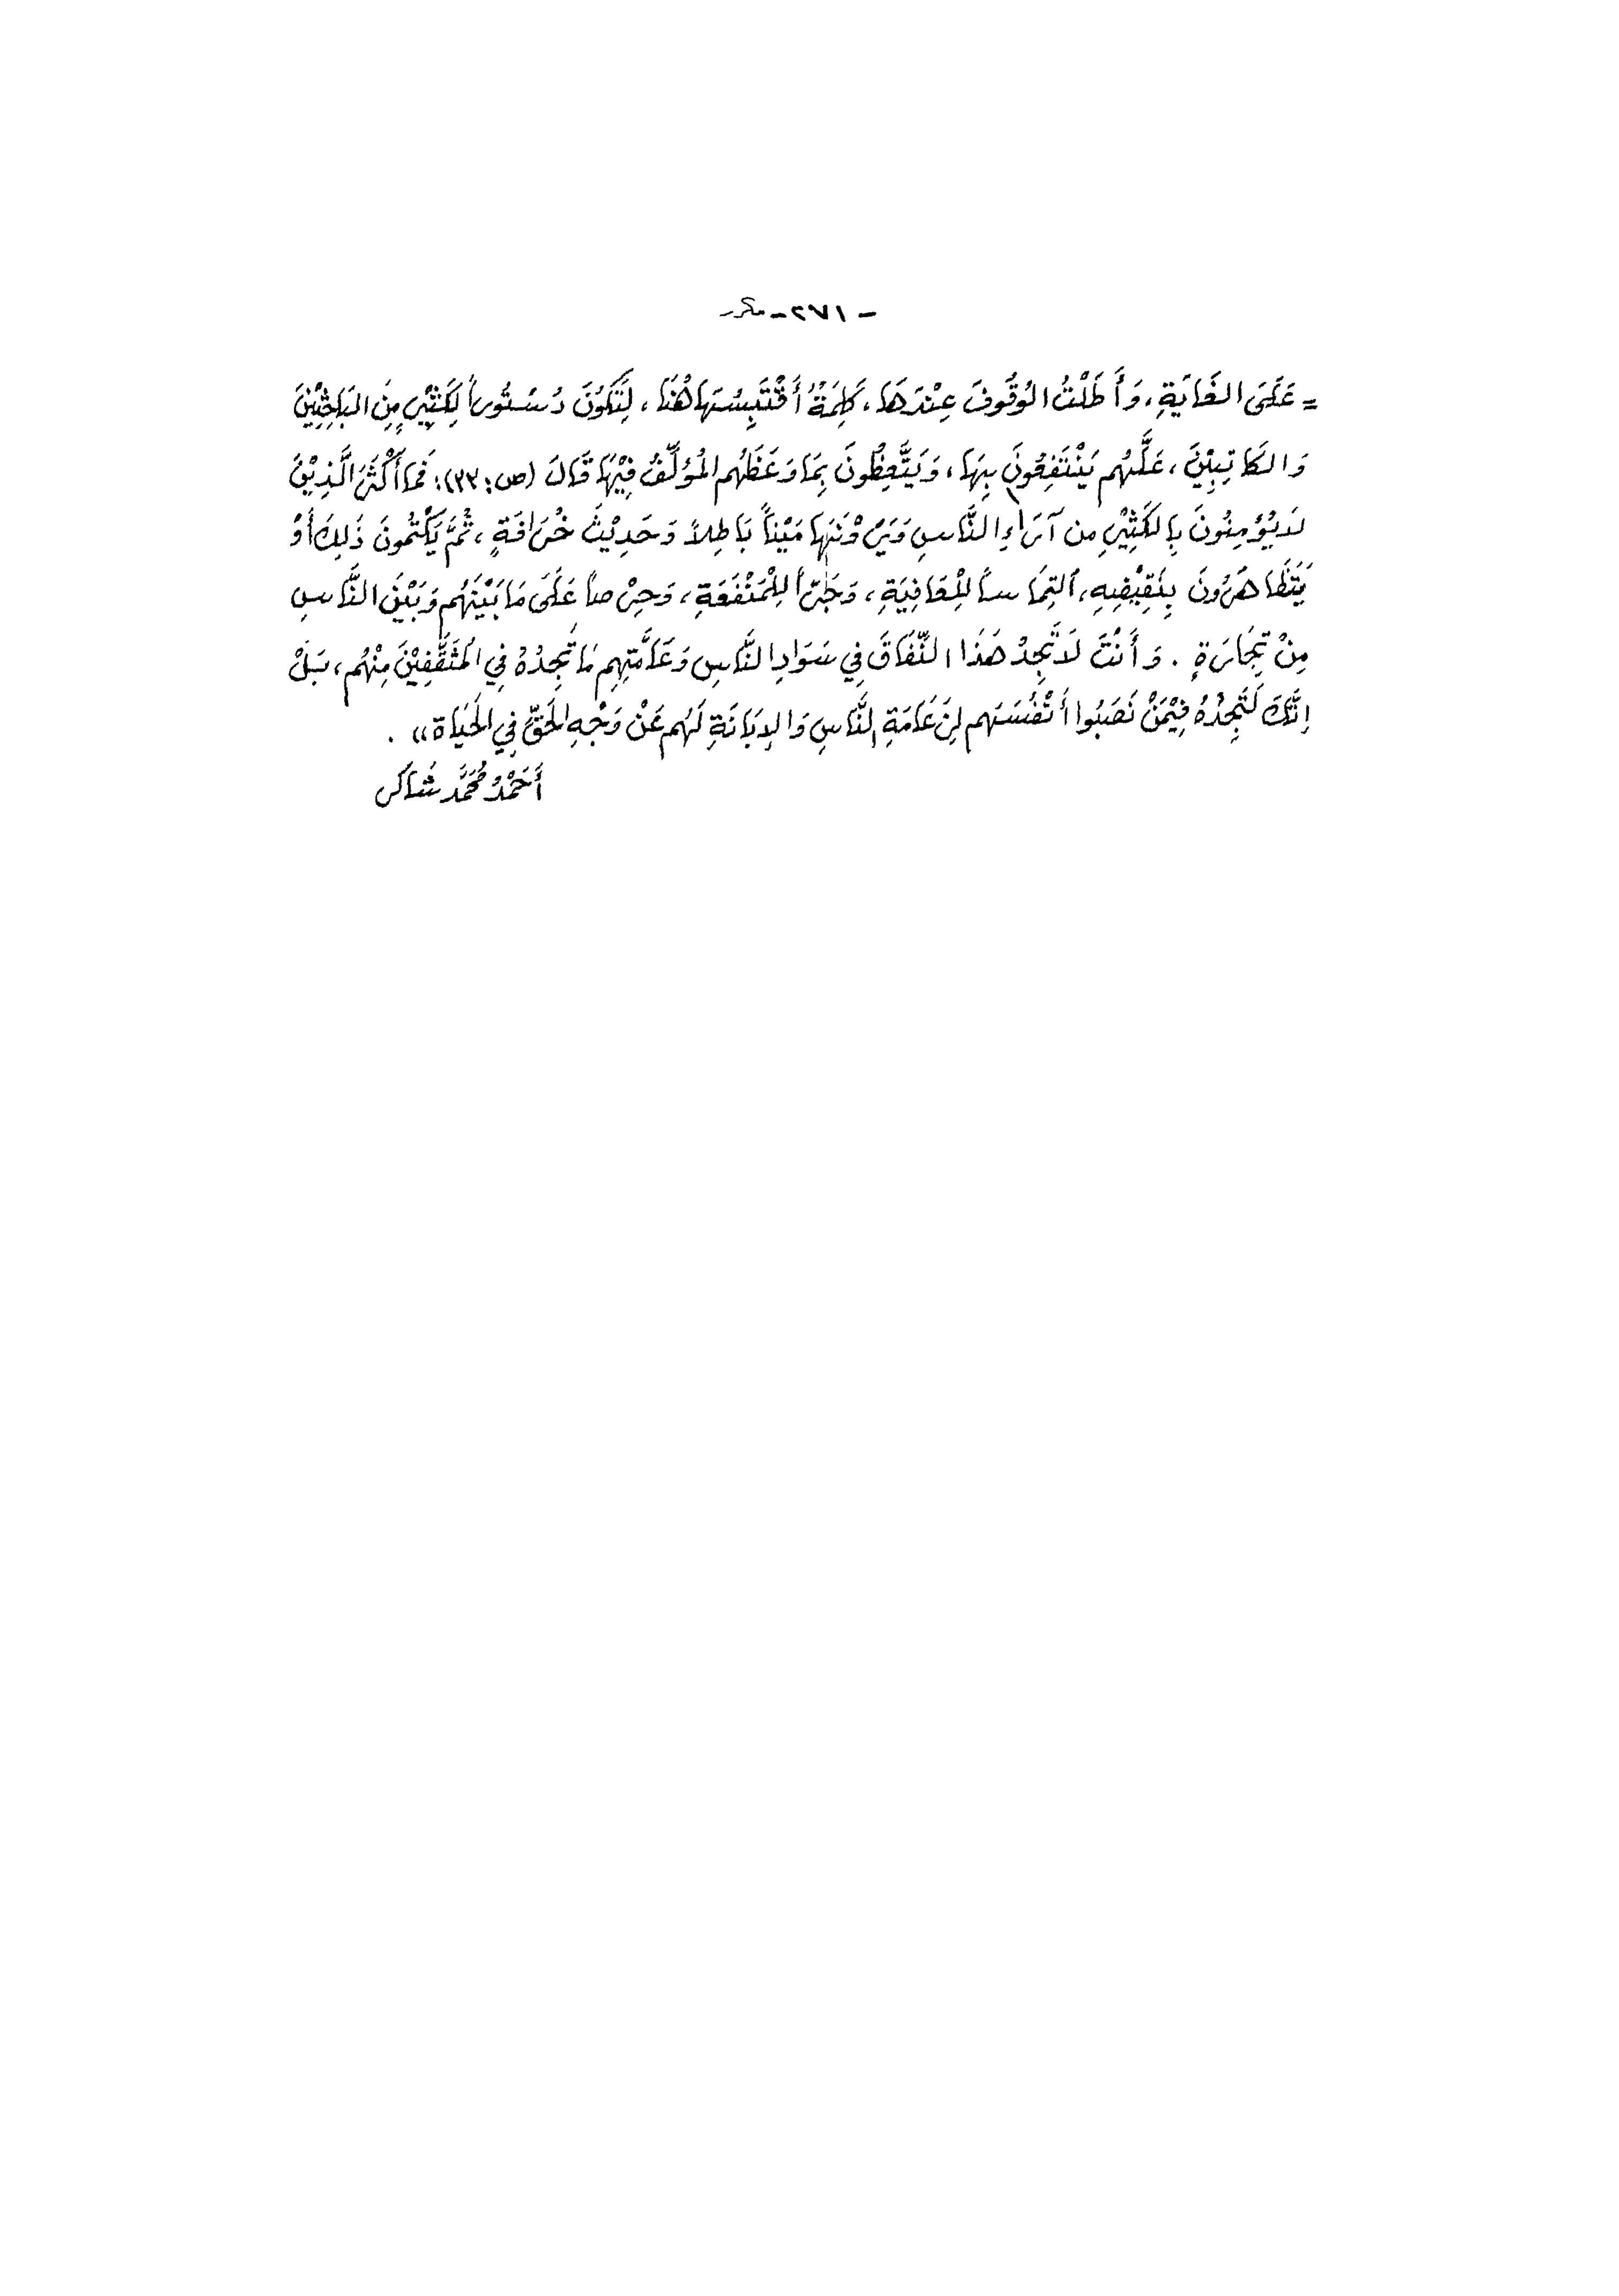 - ٢٧١ - مكرر
= عَلَى الغَايَةِ، وَأَطَلْتُ الوُقُوفَ عِنْدَهَا، كَلِمَةٌ أَقْتَبِسُهَا هُنَا، لِتَكُونَ دُسْتُوراً لِكَثِيْرٍ مِنَ البَاحِثِيْنَ
وَالكَاتِبِيْنَ، عَلَّهُم يَنْتَفِعُونَ بِهَا، وَيَتَّعِظُونَ بِمَا وَعَظَهُم المُؤَلِّفُ فِيْهَا قَالَ (ص: ٣٣): فَمَا أَكْثَرَ الَّذِيْنَ
لَا يُؤمِنُونَ بِالكَثِيْرِ مِن آرَاءِ النَّاسِ وَيَرَوْنَهَا مَيْناً بَاطِلاً وَحَدِيْثَ خُرَافَةٍ، ثُمَّ يَكْتُمُونَ ذَلِكَ أَوْ
يَتَظَاهَرُونَ بِنَقِيْضِهِ، التِمَاساً لِلْعَافِيَةِ، وَجَرّاً لِلْمَنْفَعَةِ، وَحِرْصاً عَلَى مَا بَيْنَهُم وَبَيْنَ النَّاسِ
مِنْ تِجَارَةٍ. وَأَنْتَ لَا تَجِدُ هَذَا النِّفَاقَ فِي سَوَادِ النَّاسِ وَعَامَّتِهِم مَا تَجِدُهُ فِي المُثَقَّفِيْنَ مِنْهُم، بَلْ
إِنَّكَ لَتَجِدُهُ فِيْمَنْ نَصَبُوا أَنْفُسَهُم لِزَعَامَةِ النَّاسِ وَالإِبَانَةِ لَهُم عَنْ وَجْهِ الحَقِّ فِي الحَيَاة».
أَحْمَدُ مُحَمَّد شَاكر